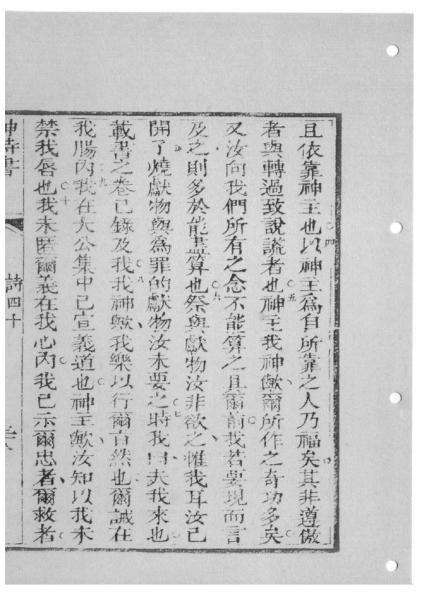 且依靠神主也以神主為自所靠之人乃福矣其非遵傲
者與轉過致說謊者也神主我神歟爾所作之奇功多矣
又汝向我們所有之念不能算之且爾前我若要現而言
及之則多於能盡算也祭與獻物汝非欲之惟我耳汝已
開了燒獻物與為罪的獻物汝未要之時我曰夫我來也
載書之卷已錄及我我神歟我樂以行爾旨然也爾誡在
我腸內我在大公集中已宣義道也神主歟汝知以我未
禁我唇也我未匿爾義在我心內我已示爾忠者爾救者
神詩書 詩四十